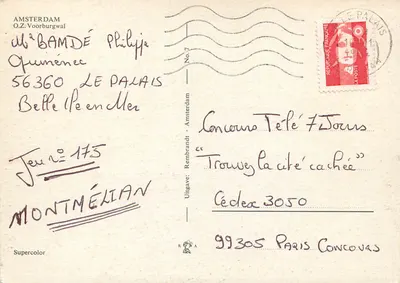 AMSTERDAM
O.Z. Voorburgwal
Mr BAMDÉ Philippe
Quemence
56360 LE PALAIS
Belle Ile en Mer
Jeu n° 175
MONTMÉLIAN
Supercolor
Uitgave: Rembrandt - Amsterdam No. 7
LE PALAIS
Concours Télé 7 Jours
"Trouvez la cité cachée"
Cédex 3050
99305 PARIS CONCOURS